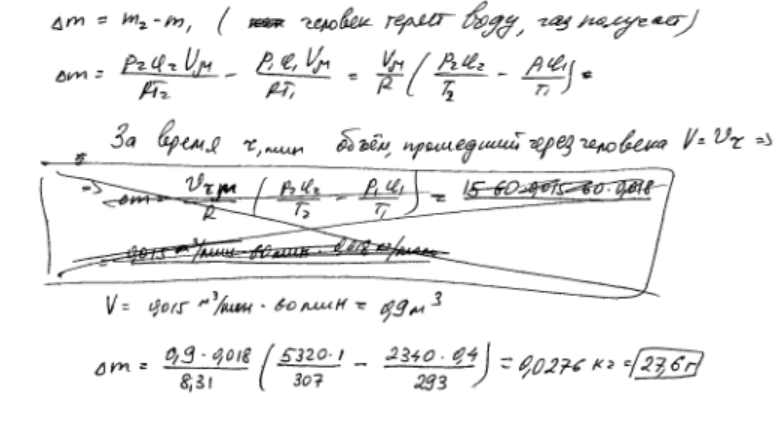 Δm = m₂ - m₁ ( человек теряет воду, газ получает)
Δm = P₂φ₂Vμ/RT₂ - P₁φ₁Vμ/RT₁ = Vμ/R ( P₂φ₂/T₂ - P₁φ₁/T₁ ) =
За время τ, мин объём, прошедший через человека V = vτ =>
=> Δm = vτμ/R ( P₂φ₂/T₂ - P₁φ₁/T₁ ) = 15·60·0,015·60·0,018
= 0,015 м³/мин · 60 мин · 0,018 кг/моль
V = 0,015 м³/мин · 60 мин = 0,9 м³
Δm = 0,9·0,018/8,31 ( 5320·1/307 - 2340·0,4/293 ) = 0,0276 кг = 27,6 г